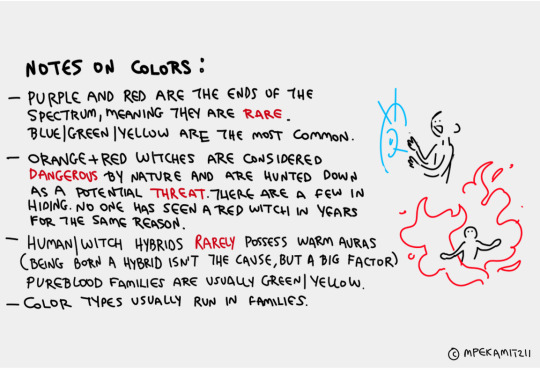 NOTES ON COLORS:
– PURPLE AND RED ARE THE ENDS OF THE
SPECTRUM, MEANING THEY ARE RARE.
BLUE|GREEN|YELLOW ARE THE MOST COMMON.
– ORANGE+RED WITCHES ARE CONSIDERED
DANGEROUS BY NATURE AND ARE HUNTED DOWN
AS A POTENTIAL THREAT. THERE ARE A FEW IN
HIDING. NO ONE HAS SEEN A RED WITCH IN YEARS
FOR THE SAME REASON.
– HUMAN|WITCH HYBRIDS RARELY POSSESS WARM AURAS
(BEING BORN A HYBRID ISN'T THE CAUSE, BUT A BIG FACTOR)
PUREBLOOD FAMILIES ARE USUALLY GREEN|YELLOW.
– COLOR TYPES USUALLY RUN IN FAMILIES.
© MPEKAMITZII